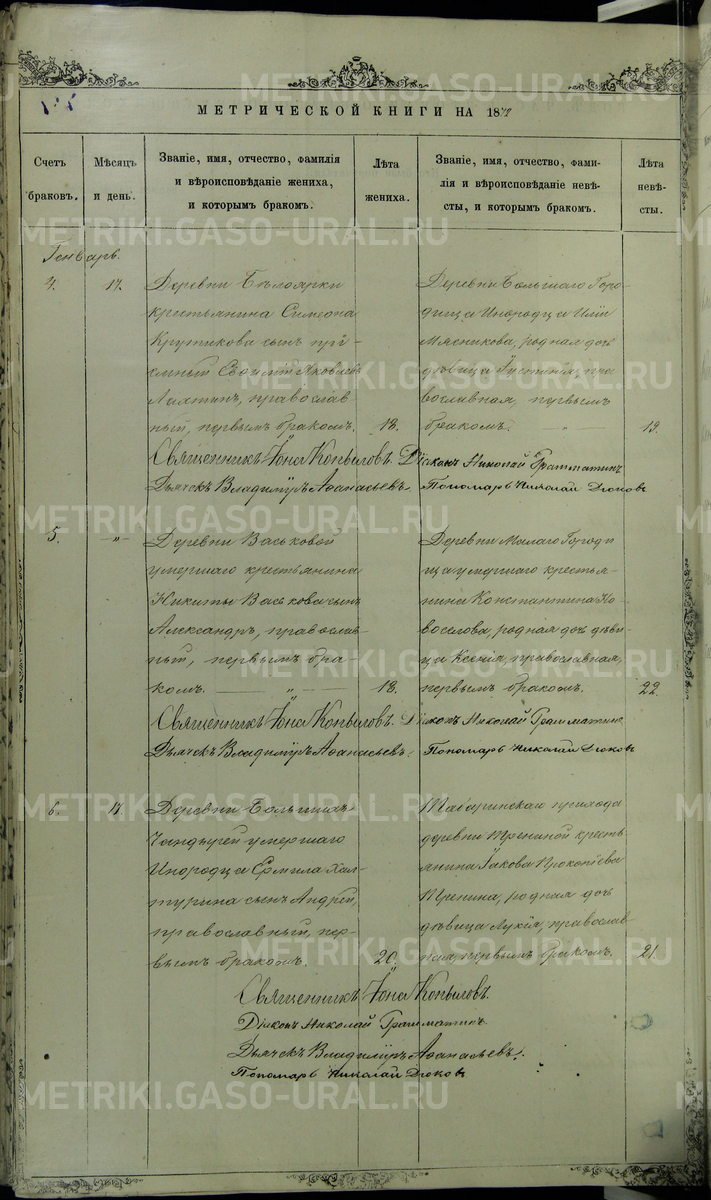 МЕТРИЧЕСКОЙ КНИГИ НА 18
Счетъ браковъ.
Мѣсяцъ и день.
Званіе, имя, отчество, фамилія
и вѣроисповѣданіе жениха,
и которымъ бракомъ.
Лѣта жениха.
Званіе, имя, отчество, фами-
лія и вѣроисповѣданіе невѣ-
сты, и которымъ бракомъ.
Лѣта невѣ-
сты.
Генварь.
4.
17.
Деревни Бѣлоярки
крестьянина Симеона
Крутикова сынъ прі-
емный Яковлевъ
православ-
ный, первымъ бракомъ.
18.
Деревни Большаго Горо-
дища Инородца Иліи
Мясникова, родная дочь
дѣвица Іустинія, пра-
вославная, первымъ
бракомъ.
19.
Священникъ Іона Копыловъ. Діаконъ Николай Грамматинъ
Дьячекъ Владиміръ Аѳанасьевъ. Пономарь Николай Дюковъ
5.
"
Деревни Васьковой
умершаго крестьянина
Никиты Васькова сынъ
Александръ, православ-
ный, первымъ бра-
комъ. "
18.
Деревни Малаго Городи
ща умершаго крестья-
нина Константина Но-
воселова, родная дочь дѣви-
ца Ксенія, православная,
первымъ бракомъ.
22.
Священникъ Іона Копыловъ. Діаконъ Николай Грамматинъ
Дьячекъ Владиміръ Аѳанасьевъ. Пономарь Николай Дюковъ
6.
17.
Деревни Большихъ
Чандырей умершаго
Инородца Ермила Хал-
турина сынъ Андрей,
православный, пер-
вымъ бракомъ.
20.
Табаринскаго прихода
деревни Трениной кресть-
янина Іакова Прокопіева
Тренина, родная дочь
дѣвица Лукія, православ-
ная, первымъ бракомъ.
21.
Священникъ Іона Копыловъ.
Діаконъ Николай Грамматинъ
Дьячекъ Владиміръ Аѳанасьевъ.
Пономарь Николай Дюковъ
METRIKI.GASO-URAL.RU